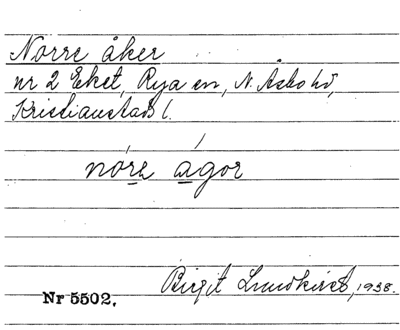 Norre åker
nr 2 Eket, Rya sn, N. Åsbo hd,
Kristianstads l.
nór̲e á̲gor
Birgit Lundkvist, 1938.
Nr 5502.